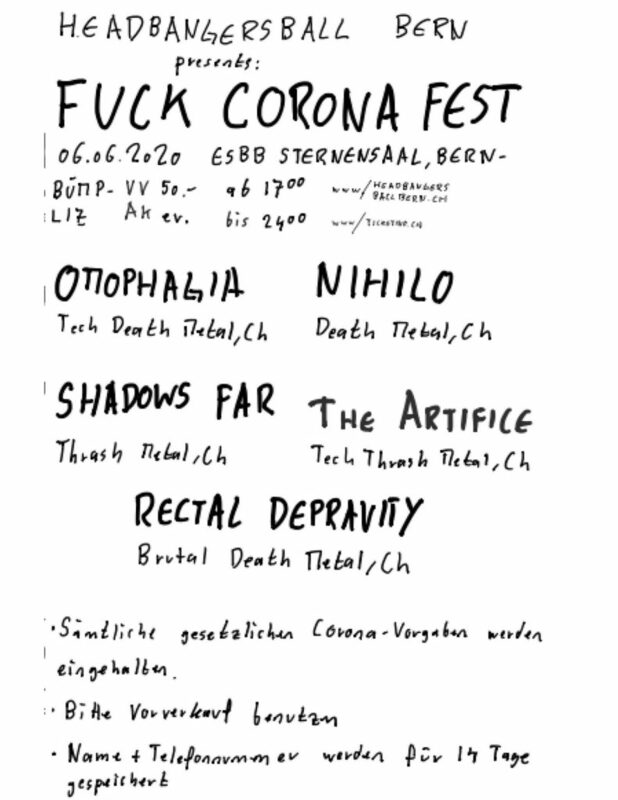 HEADBANGERSBALL BERN
presents:
FUCK CORONA FEST
06.06.2020 ESBB STERNENSAAL, BERN-
BÜMPLIZ VV 50.- ab 17⁰⁰ www/HEADBANGERS
BALLBERN.CH
AK ev. bis 24⁰⁰ www/TICKETINO.CH
OMOPHAGIA NIHILO
Tech Death Metal, Ch Death Metal, Ch
SHADOWS FAR THE ARTIFICE
Thrash Metal, Ch Tech Thrash Metal, Ch
RECTAL DEPRAVITY
Brutal Death Metal, Ch
· Sämtliche gesetzlichen Corona-Vorgaben werden
eingehalten.
· Bitte Vorverkauf benutzen
· Name + Telefonnummer werden für 14 Tage
gespeichert